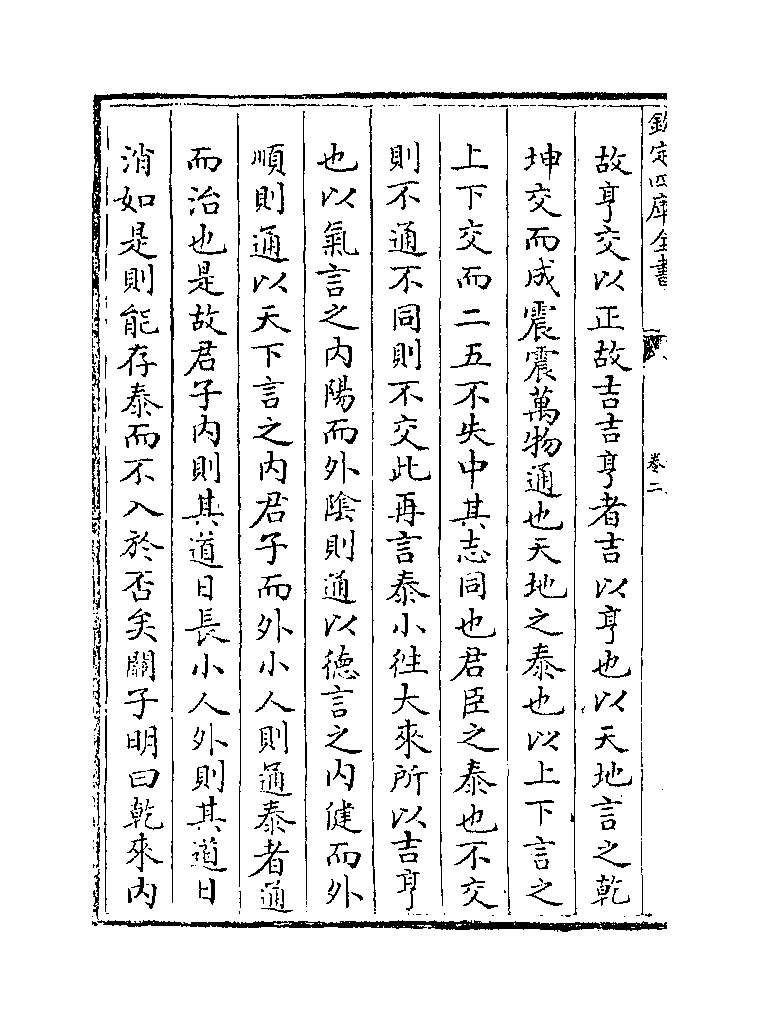 欽定四庫全書
卷二
故亨交以正故吉吉亨者吉以亨也以天地言之乾
坤交而成震震萬物通也天地之泰也以上下言之
上下交而二五不失中其志同也君臣之泰也不交
則不通不同則不交此再言泰小徃大來所以吉亨
也以氣言之内陽而外陰則通以徳言之内健而外
順則通以天下言之内君子而外小人則通泰者通
而治也是故君子内則其道日長小人外則其道日
消如是則能存泰而不入於否矣關子明曰乾來内